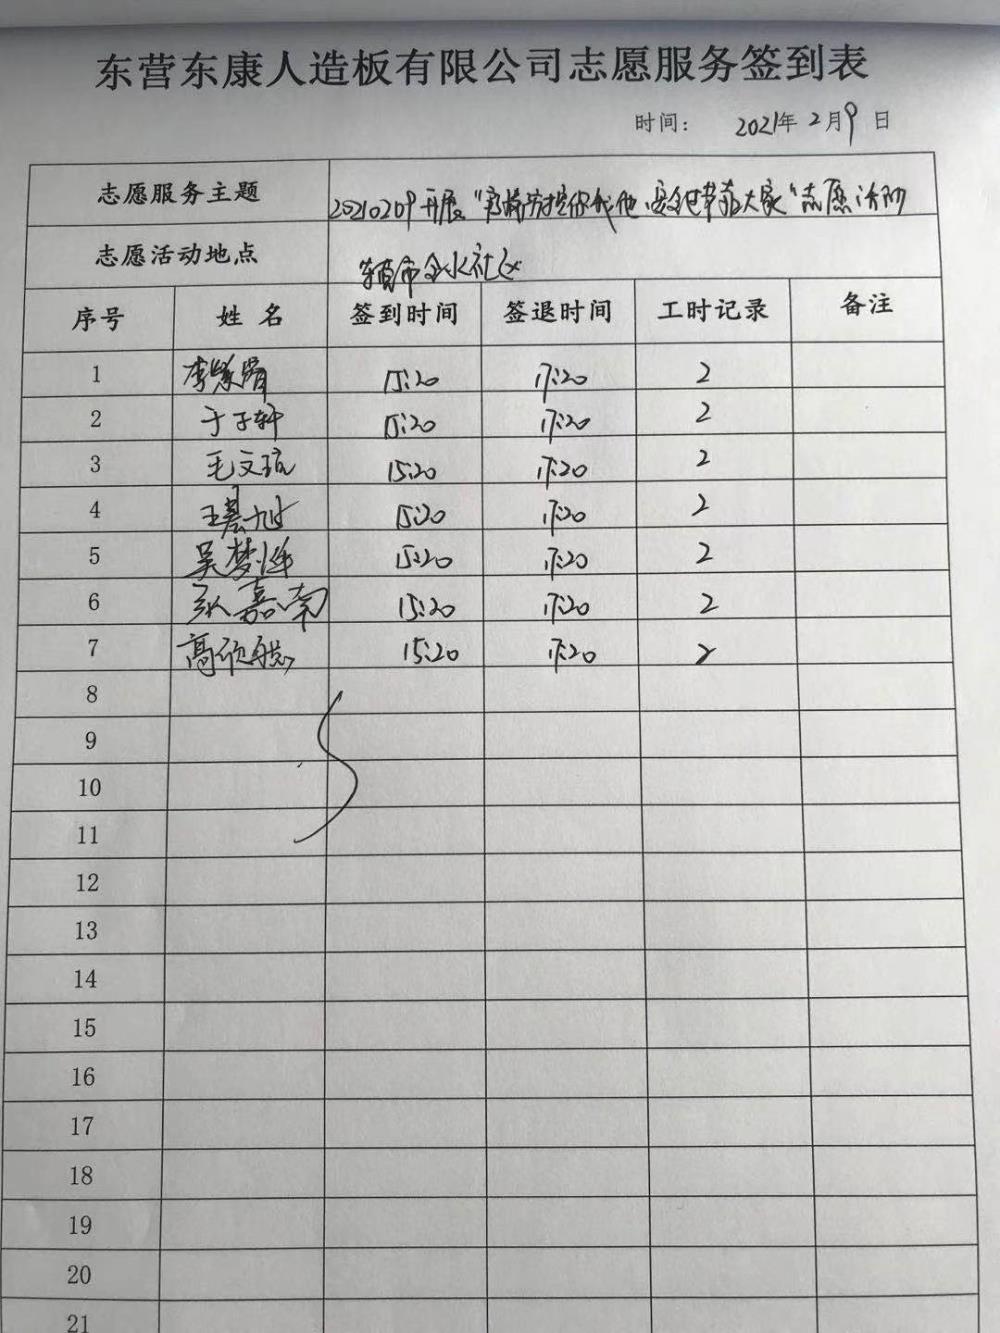 东营东康人造板有限公司志愿服务签到表
时间： 2021年2月9日
志愿服务主题 20210209开展“疫情防控你我他，安全过节靠大家”志愿活动
志愿活动地点 东营市 社区
序号 姓 名 签到时间 签退时间 工时记录 备注
1 李 15:20 17:20 2
2 于子轩 15:20 17:20 2
3 毛文 15:20 17:20 2
4 王 旭 15:20 17:20 2
5 吴梦 15:20 17:20 2
6 嘉 15:20 17:20 2
7 高欣 15:20 17:20 2
8
9
10
11
12
13
14
15
16
17
18
19
20
21